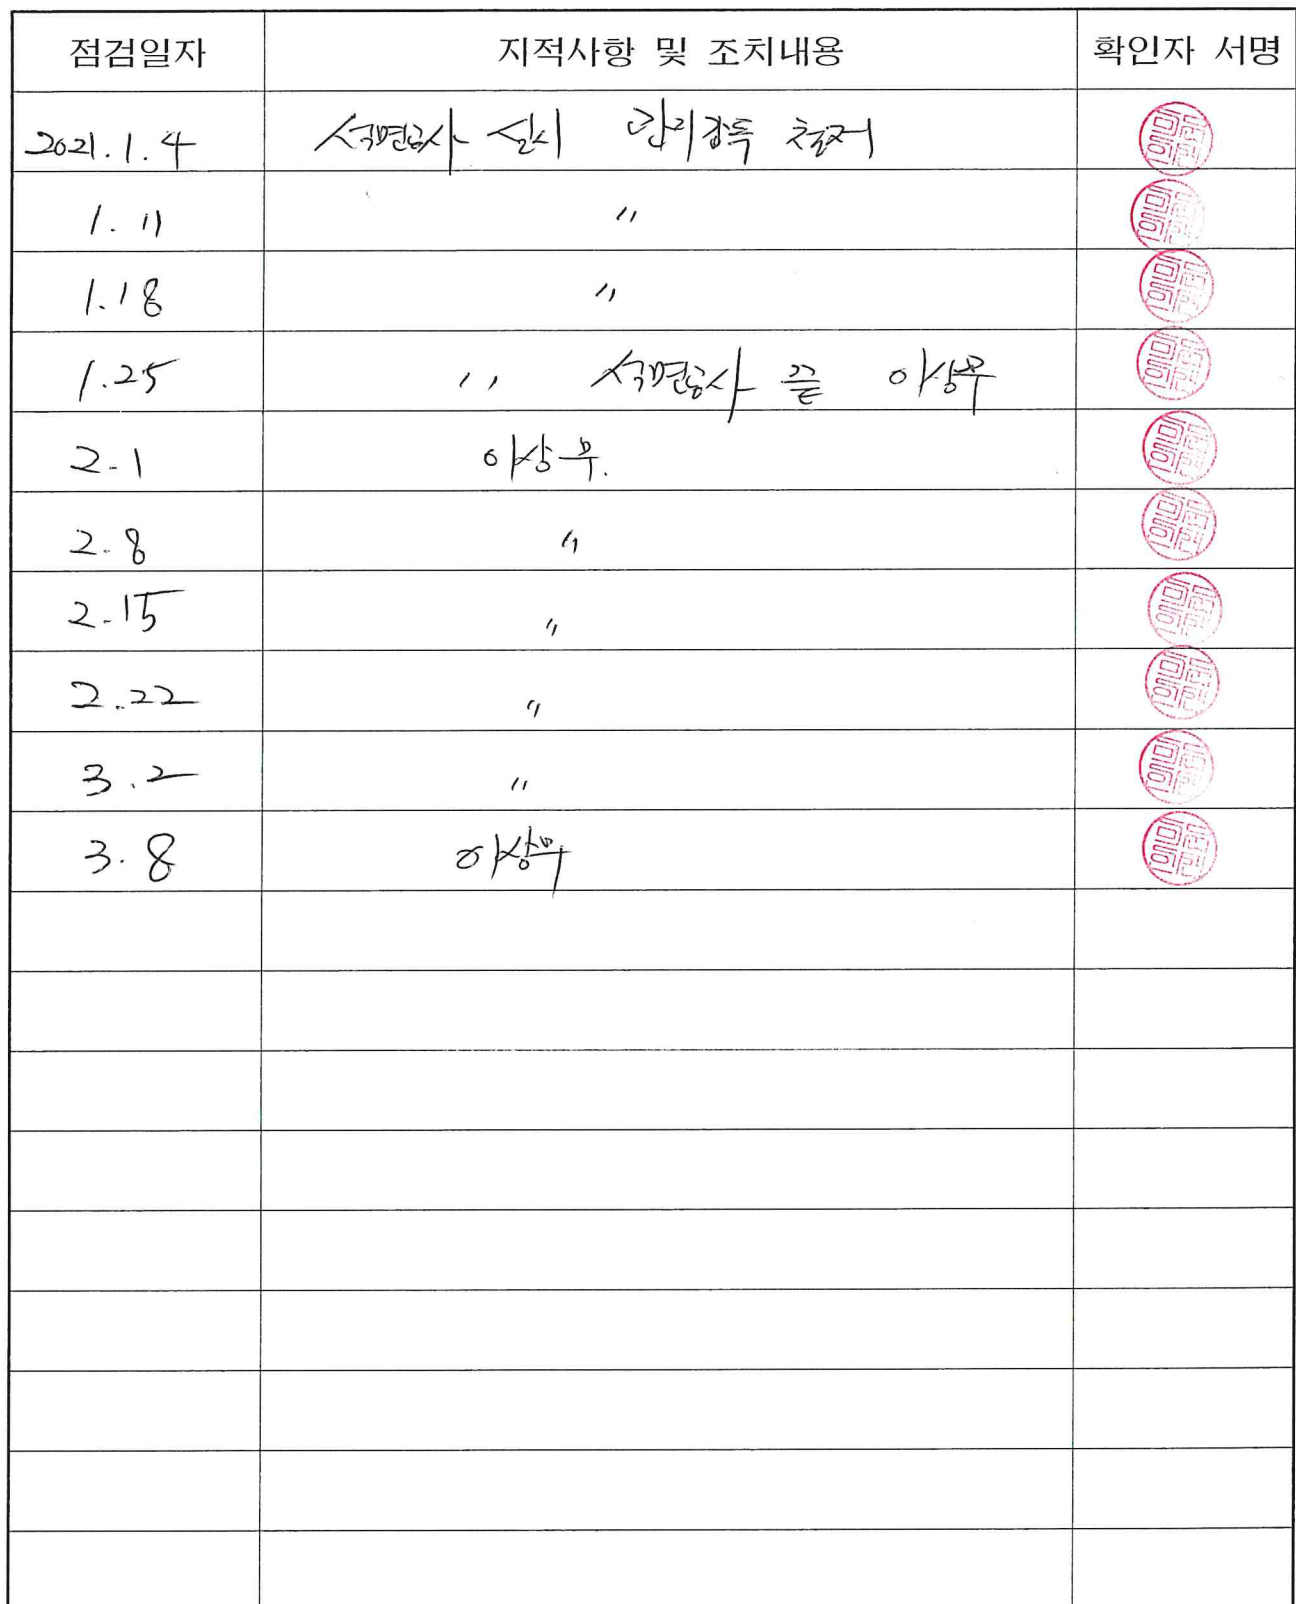 점검일자 지적사항 및 조치내용 확인자 서명
2021.1.4 석면공사 실시 관리감독 철저
1.11 〃
1.18 〃
1.25 〃 석면공사 끝 이상무
2.1 이상무.
2.8 〃
2.15 〃
2.22 〃
3.2 〃
3.8 이상무